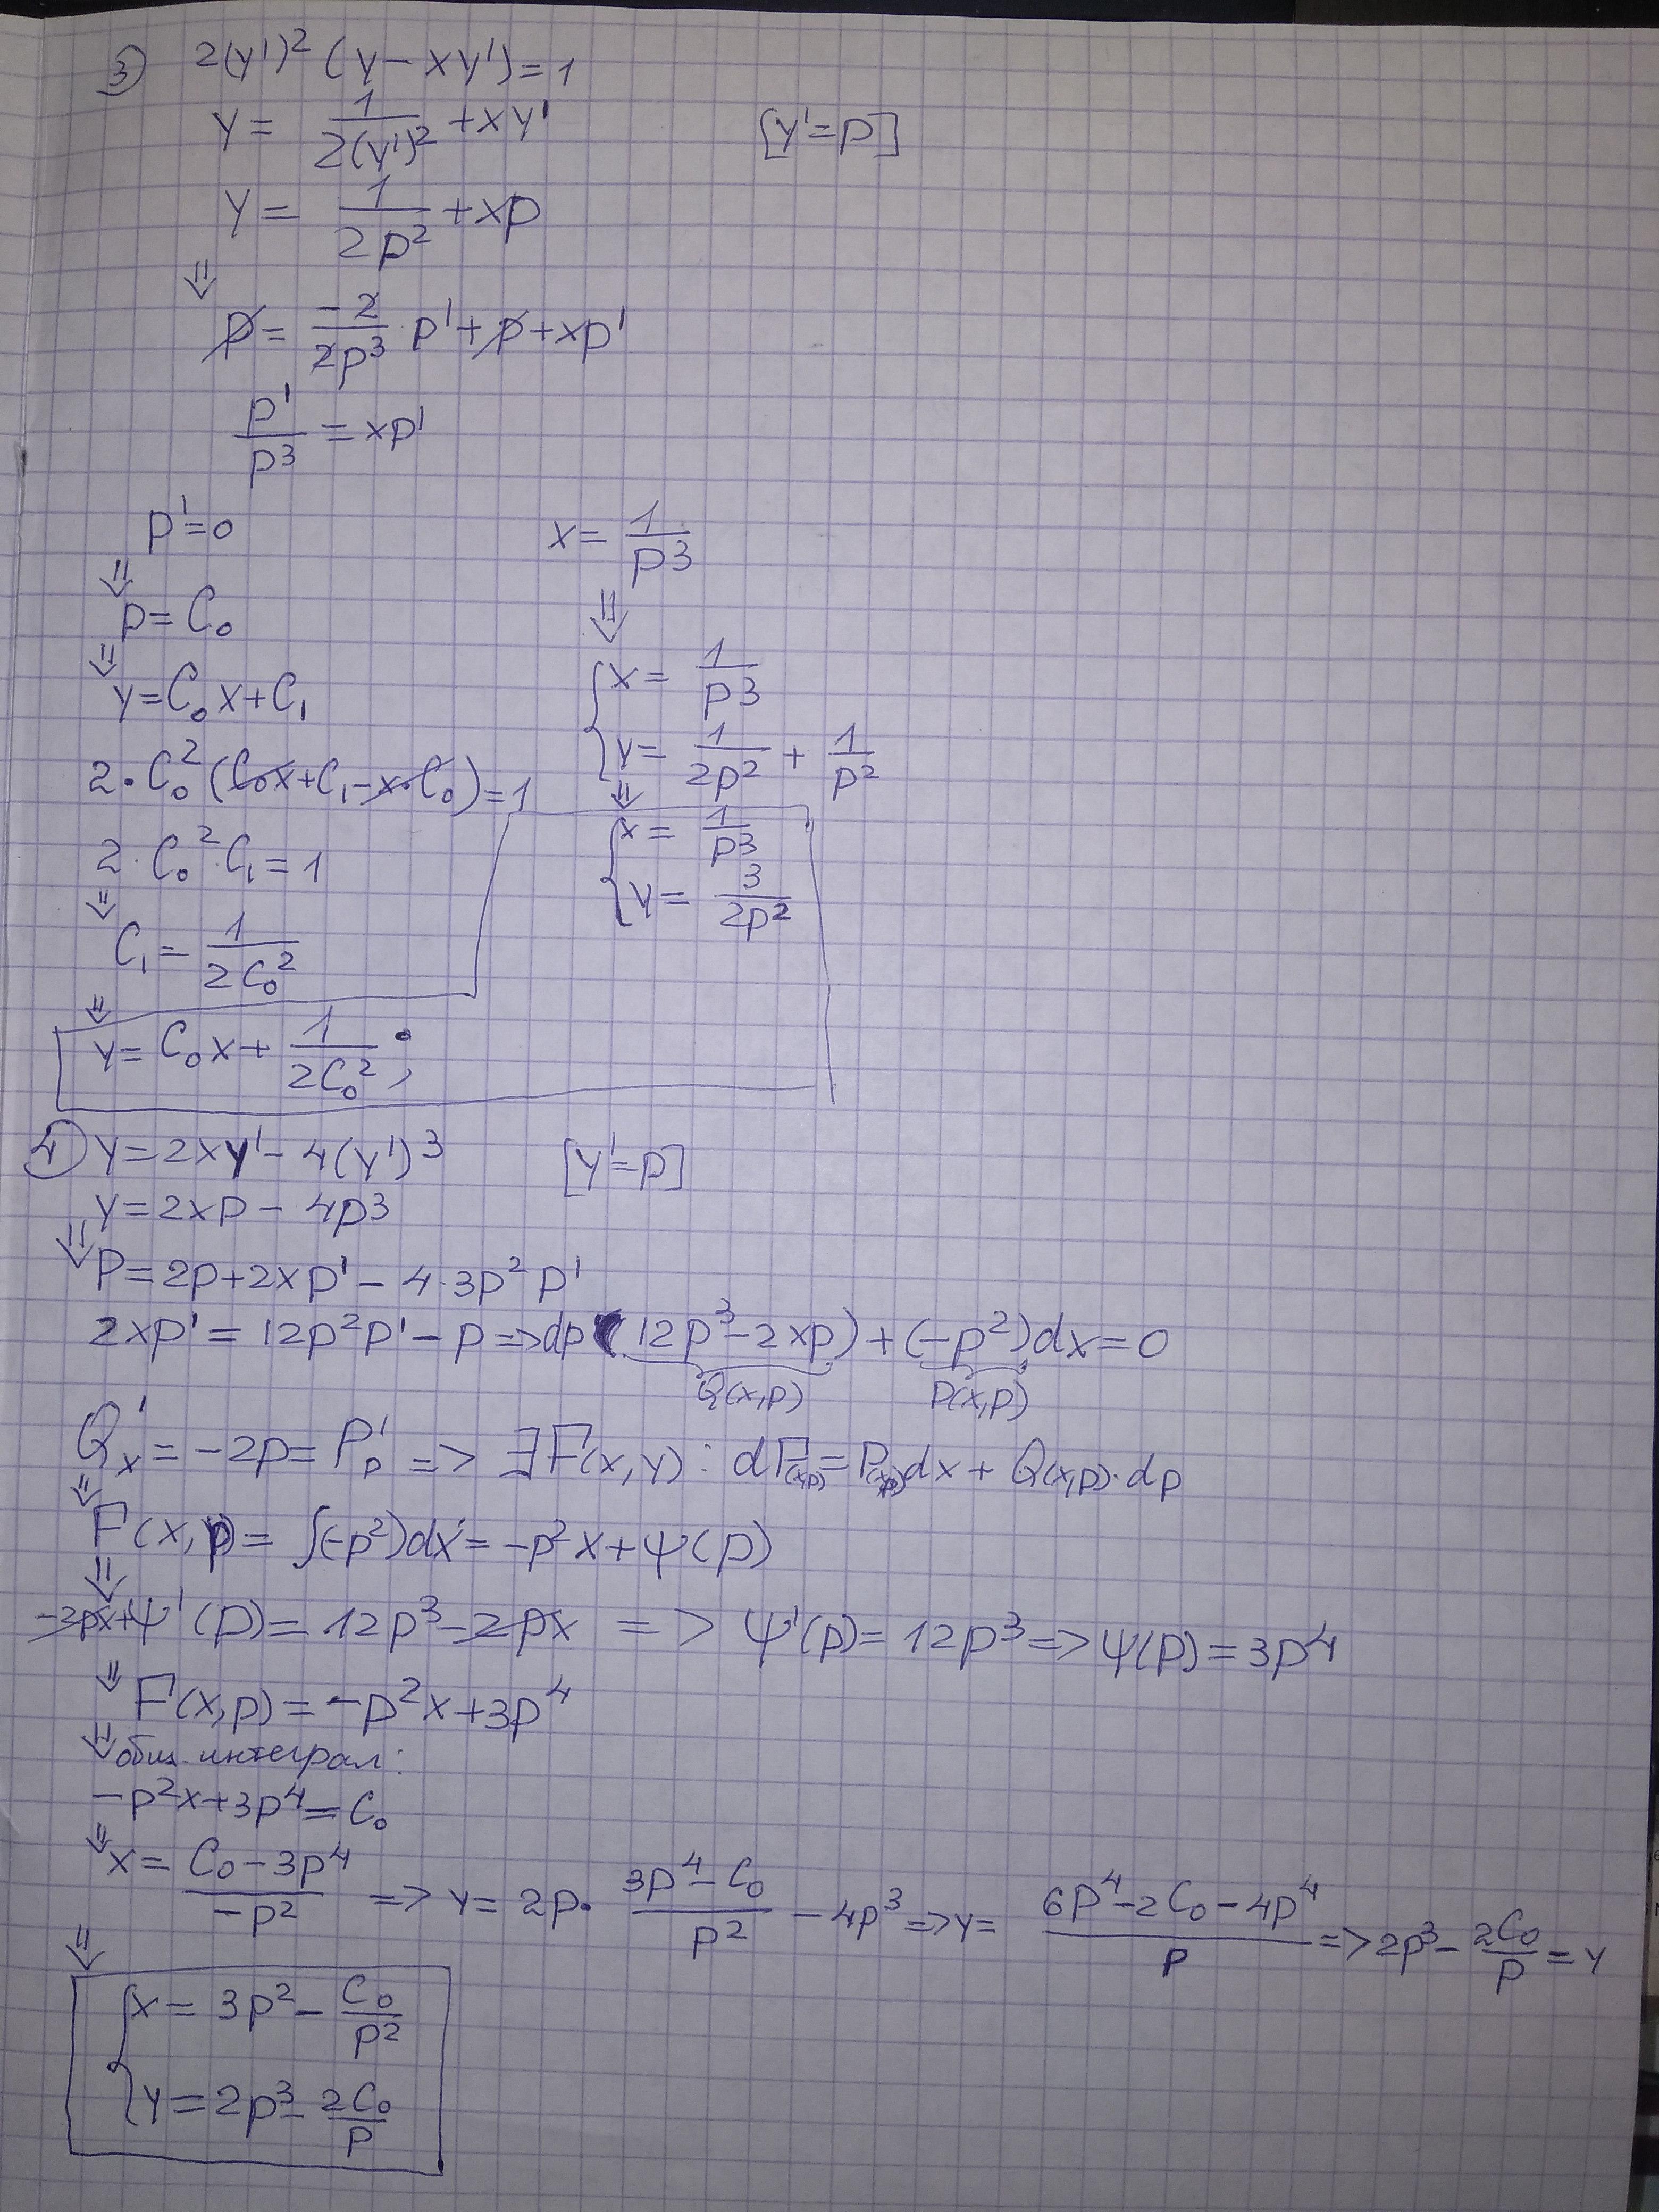 3) 2(y')² (y - xy') = 1
y = 1/(2(y')²) + xy' [y'=p]
y = 1/(2p²) + xp
⇓
p = -2/(2p³) · p' + p + xp'
p'/p³ = xp'
p'=0
⇓
p = C₀
⇓
y = C₀x + C₁
2·C₀²(C₀x + C₁ - x·C₀) = 1
2·C₀²·C₁ = 1
⇓
C₁ = 1/(2C₀²)
⇓
y = C₀x + 1/(2C₀²);
x = 1/p³
⇓
{ x = 1/p³
y = 1/(2p²) + 1/p²
⇓
{ x = 1/p³
y = 3/(2p²)
4) y = 2xy' - 4(y')³ [y'=p]
y = 2xp - 4p³
⇓ p = 2p + 2xp' - 4·3p²p'
2xp' = 12p²p' - p => dp(12p³ - 2xp) + (-p²)dx = 0
Q(x,p) P(x,p)
Q'ₓ = -2p = P'ₚ => ∃F(x,y): dF(x,p) = P(x,p)dx + Q(x,p)·dp
⇓
F(x,p) = ∫(-p²)dx = -p²x + ψ(p)
⇓
-2px + ψ'(p) = 12p³ - 2px => ψ'(p) = 12p³ => ψ(p) = 3p⁴
⇓ F(x,p) = -p²x + 3p⁴
⇓ общ. интеграл:
-p²x + 3p⁴ = C₀
⇓ x = (C₀ - 3p⁴)/(-p²) => y = 2p · (3p⁴ - C₀)/p² - 4p³ => y = (6p⁴ - 2C₀ - 4p⁴)/p => 2p³ - 2C₀/p = y
⇓
{ x = 3p² - C₀/p²
y = 2p³ - 2C₀/p